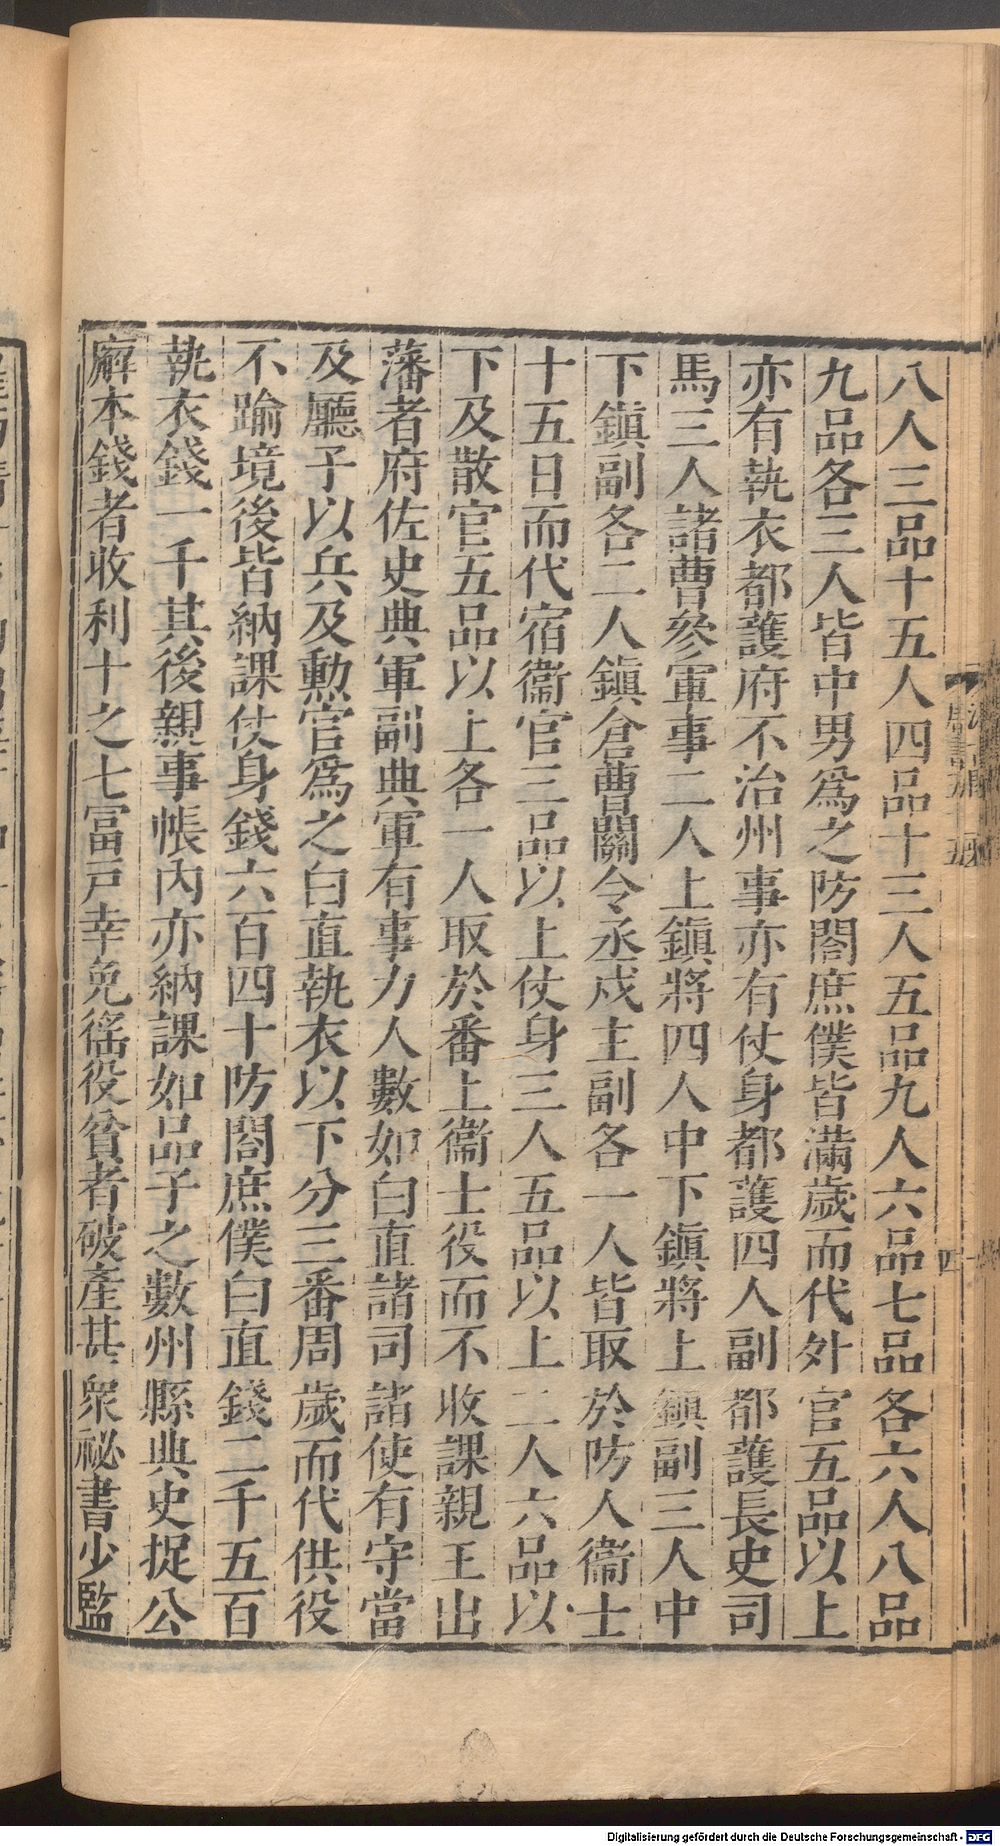 八人三品十五人四品十三人五品九人六品七品各六人八品
九品各三人皆中男爲之防閤庶僕皆滿歲而代外官五品以上
亦有執衣都護府不治州事亦有仗身都護四人副都護長史司
馬三人諸曹參軍事二人上鎭將四人中下鎭將上鎭副三人中
下鎭副各二人鎭倉曹關令丞戍主副各一人皆取於防人衞士
十五日而代宿衞官三品以上仗身三人五品以上二人六品以
下及散官五品以上各一人取於番上衞士役而不收課親王出
藩者府佐史典軍副典軍有事力人數如白直諸司諸使有守當
及廳子以兵及勲官爲之白直執衣以下分三番周歲而代供役
不踰境後皆納課仗身錢六百四十防閤庶僕白直錢二千五百
執衣錢一千其後親事帳內亦納課如品子之數州縣典史捉公
廨本錢者收利十之七冨戸幸免徭役貧者破產甚衆祕書少監
四
Digitalisierung gefördert durch die Deutsche Forschungsgemeinschaft - DFG